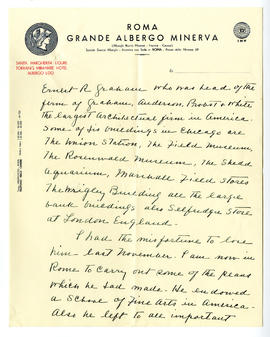 ROMA
GRANDE ALBERGO MINERVA
SANTA MARGHERITA LIGURE
ALBERGO LIDO
Ernest R Graham who was head of the
firm of Graham, Anderson, Probst & White
the largest Architectural firm in America
Some of his buildings in Chicago are
The Union Station, The Field Museum,
The Rosenwald Museum, The Shedd
Aquarium, Marshall Field Stores
The Wrigley Building all the large
bank buildings also Selfridge Store
at London England.
I had the misfortune to lose
him last November. I am now in
Rome to carry out some of the plans
which he had made. He endowed
a School of Fine Arts in America.
Also he left to all important